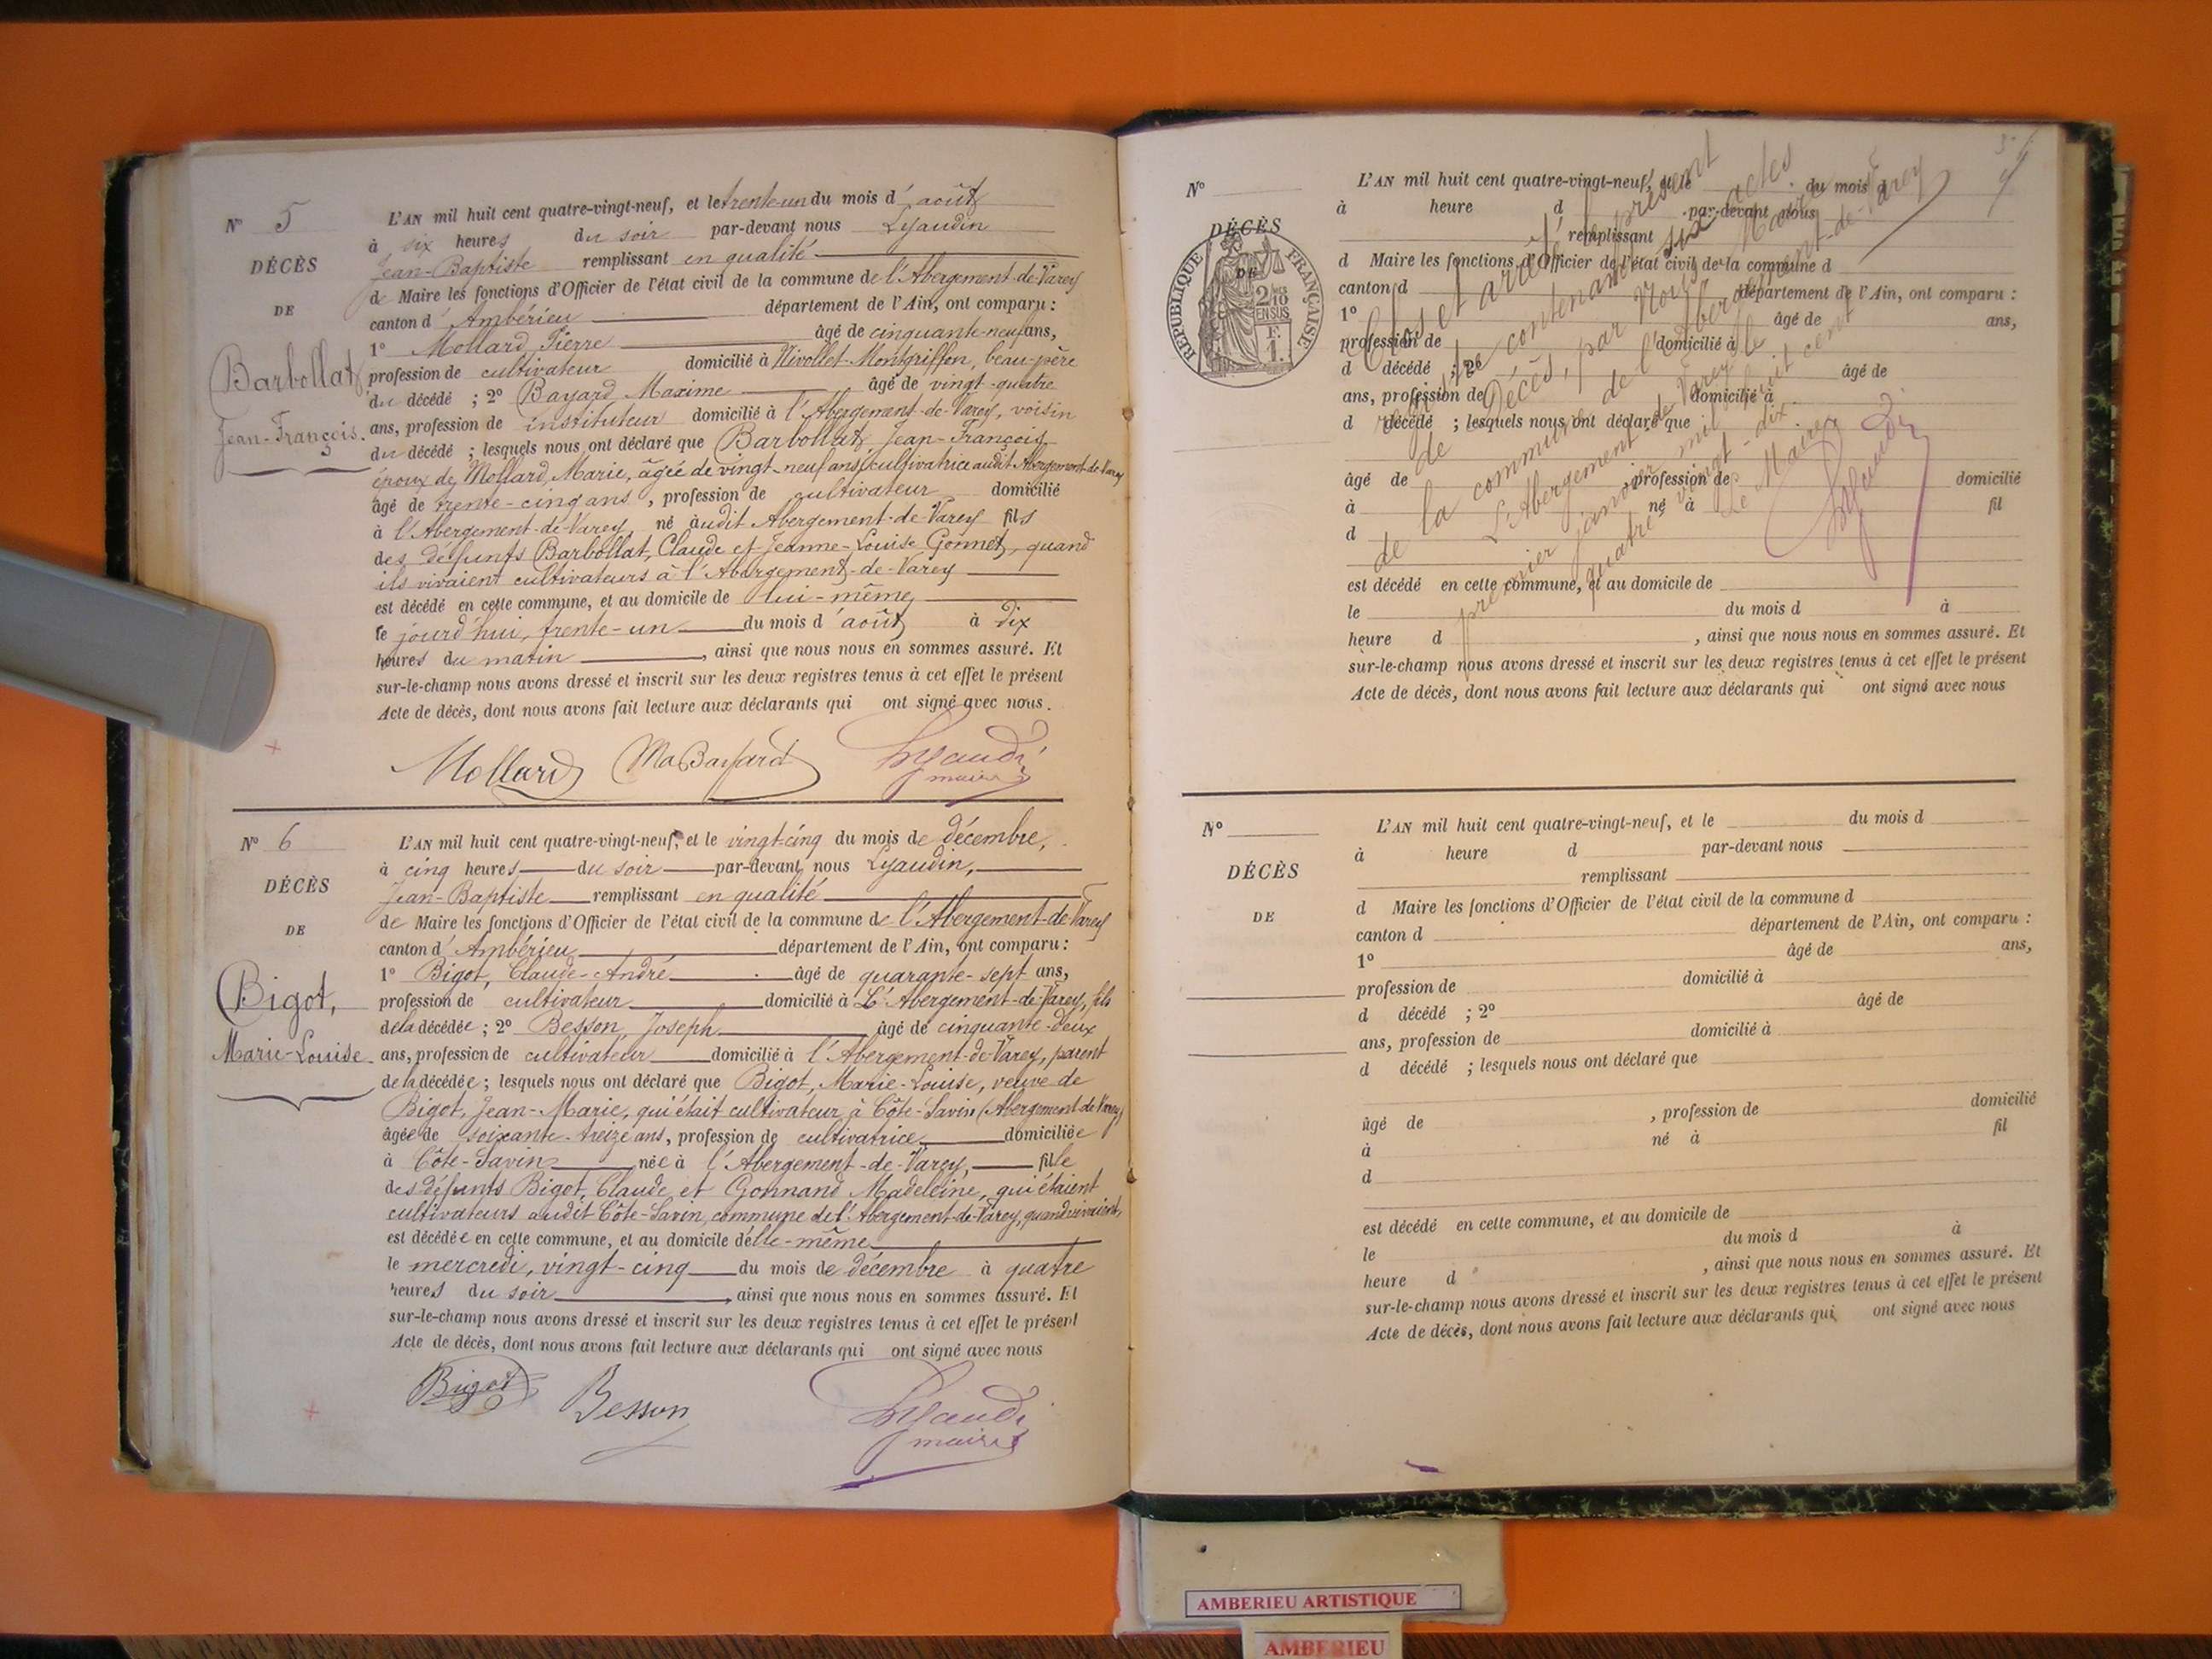 N° 5
DÉCÈS
DE
Barbollat
Jean-François.
L'AN mil huit cent quatre-vingt-neuf, et le trente-un du mois d'août
à six heures du soir par-devant nous Lyaudin
Jean-Baptiste remplissant en qualité
de Maire les fonctions d'Officier de l'état civil de la commune de l'Abergement-de-Varey
canton d'Ambérieu département de l'Ain, ont comparu :
1° Mollard Pierre âgé de cinquante-neuf ans,
profession de cultivateur domicilié à Nivollet-Montgriffon, beau-père
du décédé ; 2° Bayard Maxime âgé de vingt-quatre
ans, profession de instituteur domicilié à l'Abergement-de-Varey, voisin
du décédé ; lesquels nous ont déclaré que Barbollat, Jean-François
époux de Mollard, Marie, âgée de vingt-neuf ans, cultivatrice audit Abergement-de-Varey
âgé de trente-cinq ans, profession de cultivateur domicilié
à l'Abergement-de-Varey, né audit Abergement-de-Varey fils
des défunts Barbollat, Claude et Jeanne-Louise Gonnet, quand
ils vivaient cultivateurs à l'Abergement-de-Varey
est décédé en cette commune, et au domicile de lui-même
le jourd'hui, trente-un du mois d'août à dix
heures du matin, ainsi que nous nous en sommes assuré. Et
sur-le-champ nous avons dressé et inscrit sur les deux registres tenus à cet effet le présent
Acte de décès, dont nous avons fait lecture aux déclarants qui ont signé avec nous.
Mollard Ma Bayard Lyaudin
maire
N° 6
DÉCÈS
DE
Bigot,
Marie-Louise
L'AN mil huit cent quatre-vingt-neuf, et le vingt-cinq du mois de décembre,
à cinq heures du soir par-devant nous Lyaudin,
Jean-Baptiste remplissant en qualité
de Maire les fonctions d'Officier de l'état civil de la commune de l'Abergement-de-Varey
canton d'Ambérieu département de l'Ain, ont comparu :
1° Bigot, Claude-André âgé de quarante-sept ans,
profession de cultivateur domicilié à L'Abergement-de-Varey, fils
de la décédée ; 2° Besson, Joseph âgé de cinquante-deux
ans, profession de cultivateur domicilié à l'Abergement-de-Varey, parent
de la décédée ; lesquels nous ont déclaré que Bigot, Marie-Louise, veuve de
Bigot, Jean-Marie, qui était cultivateur à Côte-Savin (Abergement de Varey)
âgée de soixante-treize ans, profession de cultivatrice domiciliée
à Côte-Savin née à l'Abergement-de-Varey, fille
des défunts Bigot, Claude et Gonnand Madeleine, qui étaient
cultivateurs audit Côte-Savin, commune de l'Abergement-de-Varey, quand vivaient,
est décédée en cette commune, et au domicile d'elle-même
le mercredi, vingt-cinq du mois de décembre à quatre
heures du soir, ainsi que nous nous en sommes assuré. Et
sur-le-champ nous avons dressé et inscrit sur les deux registres tenus à cet effet le présent
Acte de décès, dont nous avons fait lecture aux déclarants qui ont signé avec nous
Bigot Besson Lyaudin
maire
N°
DÉCÈS
DE
RÉPUBLIQUE FRANÇAISE
2/10 EN SUS
F. 1.
L'AN mil huit cent quatre-vingt-neuf, et le du mois d
à heure d par-devant nous
remplissant
d Maire les fonctions d'Officier de l'état civil de la commune d
canton d département de l'Ain, ont comparu :
1° âgé de ans,
profession de domicilié à
d décédé ; 2° âgé de
ans, profession de domicilié à
d décédé ; lesquels nous ont déclaré que
âgé de , profession de domicilié
à né à fil
d
est décédé en cette commune, et au domicile de
le du mois d à
heure d , ainsi que nous nous en sommes assuré. Et
sur-le-champ nous avons dressé et inscrit sur les deux registres tenus à cet effet le présent
Acte de décès, dont nous avons fait lecture aux déclarants qui ont signé avec nous
Clos et arrêté le présent
registre contenant six actes
de Décès, par Nous, Maire
de la commune de l'Abergement-de-Varey
L'Abergement-de-Varey le
premier janvier mil huit cent
quatre-vingt-dix
Le Maire
Lyaudin
N°
DÉCÈS
DE
L'AN mil huit cent quatre-vingt-neuf, et le du mois d
à heure d par-devant nous
remplissant
d Maire les fonctions d'Officier de l'état civil de la commune d
canton d département de l'Ain, ont comparu :
1° âgé de ans,
profession de domicilié à
d décédé ; 2° âgé de
ans, profession de domicilié à
d décédé ; lesquels nous ont déclaré que
âgé de , profession de domicilié
à né à fil
d
est décédé en cette commune, et au domicile de
le du mois d à
heure d , ainsi que nous nous en sommes assuré. Et
sur-le-champ nous avons dressé et inscrit sur les deux registres tenus à cet effet le présent
Acte de décès, dont nous avons fait lecture aux déclarants qui ont signé avec nous
AMBERIEU ARTISTIQUE
AMBERIEU